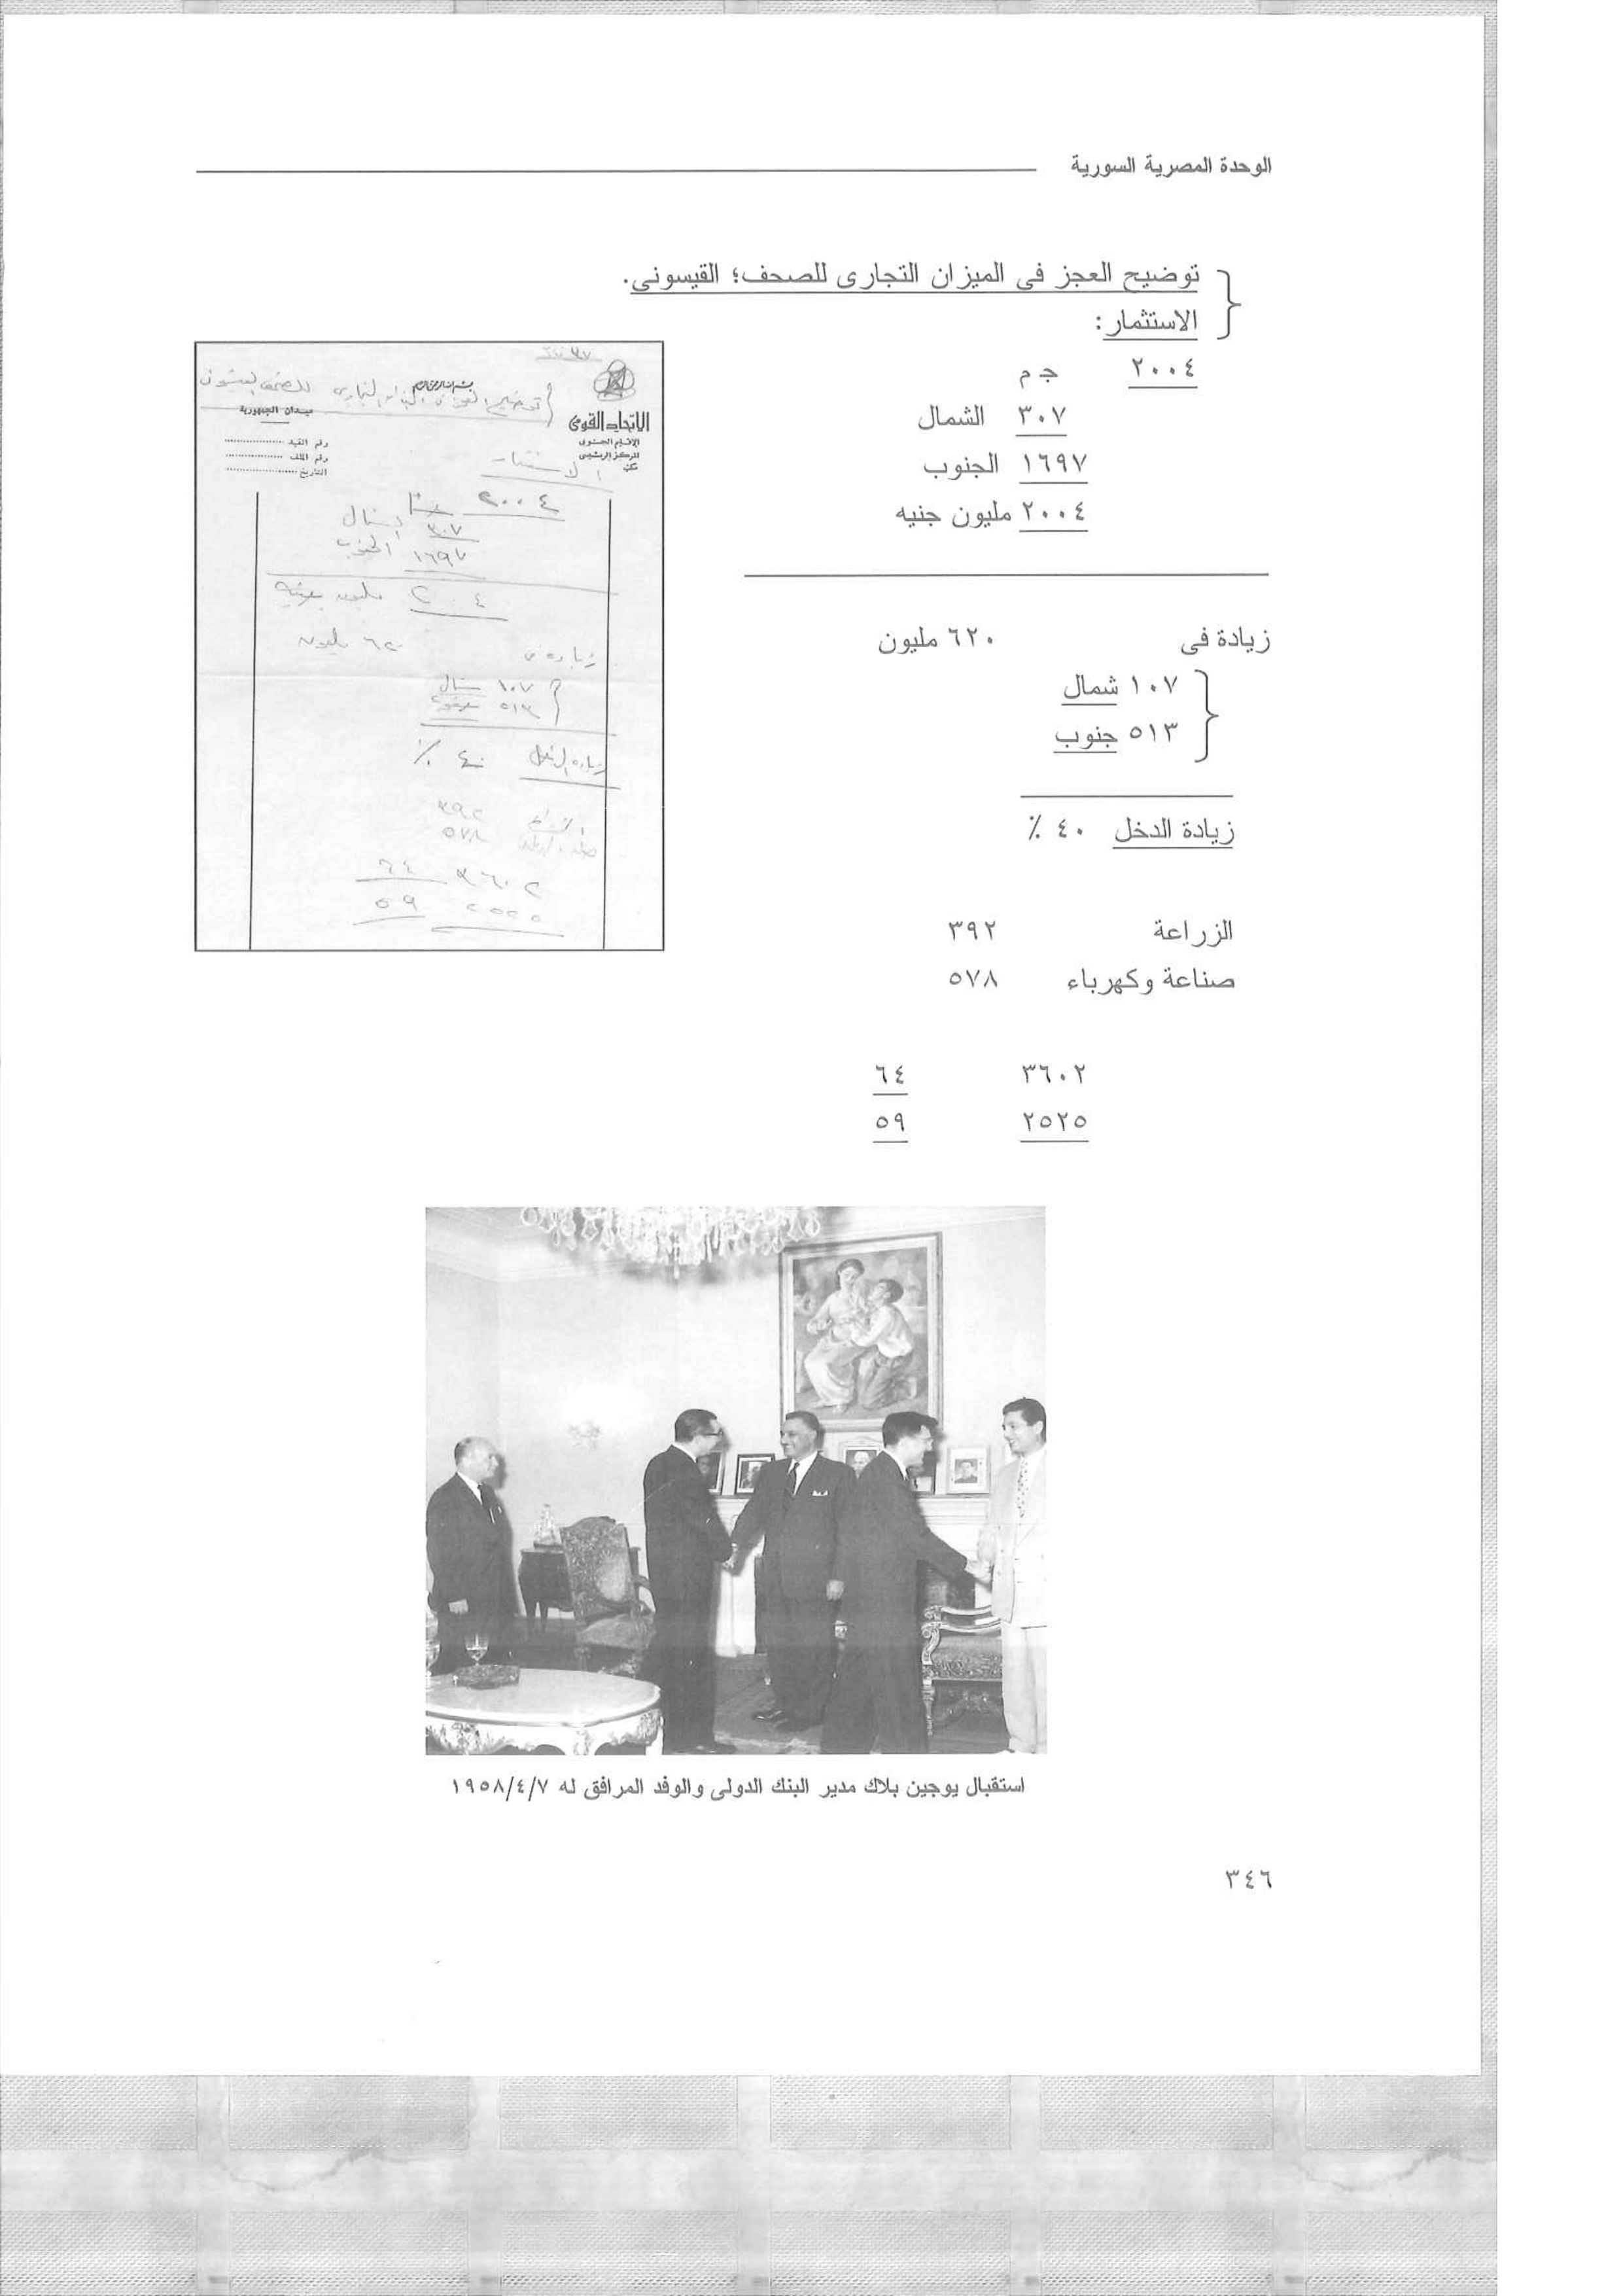 الوحدة المصرية السورية
توضيح العجز فى الميزان التجارى للصحف؛ القيسونى.
الاستثمار:
٢٠٠٤ ج م
٣٠٧ الشمال
١٦٩٧ الجنوب
٢٠٠٤ مليون جنيه
زيادة فى ٦٢٠ مليون
١٠٧ شمال
٥١٣ جنوب
زيادة الدخل ٤٠ ٪
الزراعة ٣٩٢
صناعة وكهرباء ٥٧٨
٣٦٠٢ ٦٤
٢٥٢٥ ٥٩
الاتحاد القومى
الإقليم الجنوبى
المركز الرئيسى
ميدان الجمهورية
رقم القيد
رقم الملف
التاريخ
٢٠٠٤
٣٠٧
١٦٩٧ الجنوب
٢٠٠٤ مليون جنيه
زيادة فى ٦٢٠ مليون
١٠٧ شمال
٥١٣ جنوب
زيادة الدخل ٤٠ ٪
٣٩٢
٥٧٨
٣٦٠٢ ٦٤
٢٥٢٥ ٥٩
استقبال يوجين بلاك مدير البنك الدولى والوفد المرافق له ١٩٥٨/٤/٧
٣٤٦